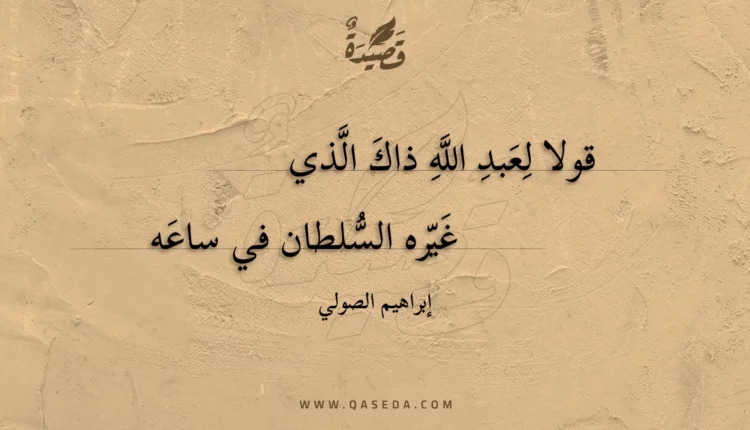 قَصِيْدَةٌ
قولا لِعَبدِ اللَّهِ ذاكَ الَّذي
غَيّرَه السُّلطان في ساعَه
إبراهيم الصولي
WWW.QASEDA.COM